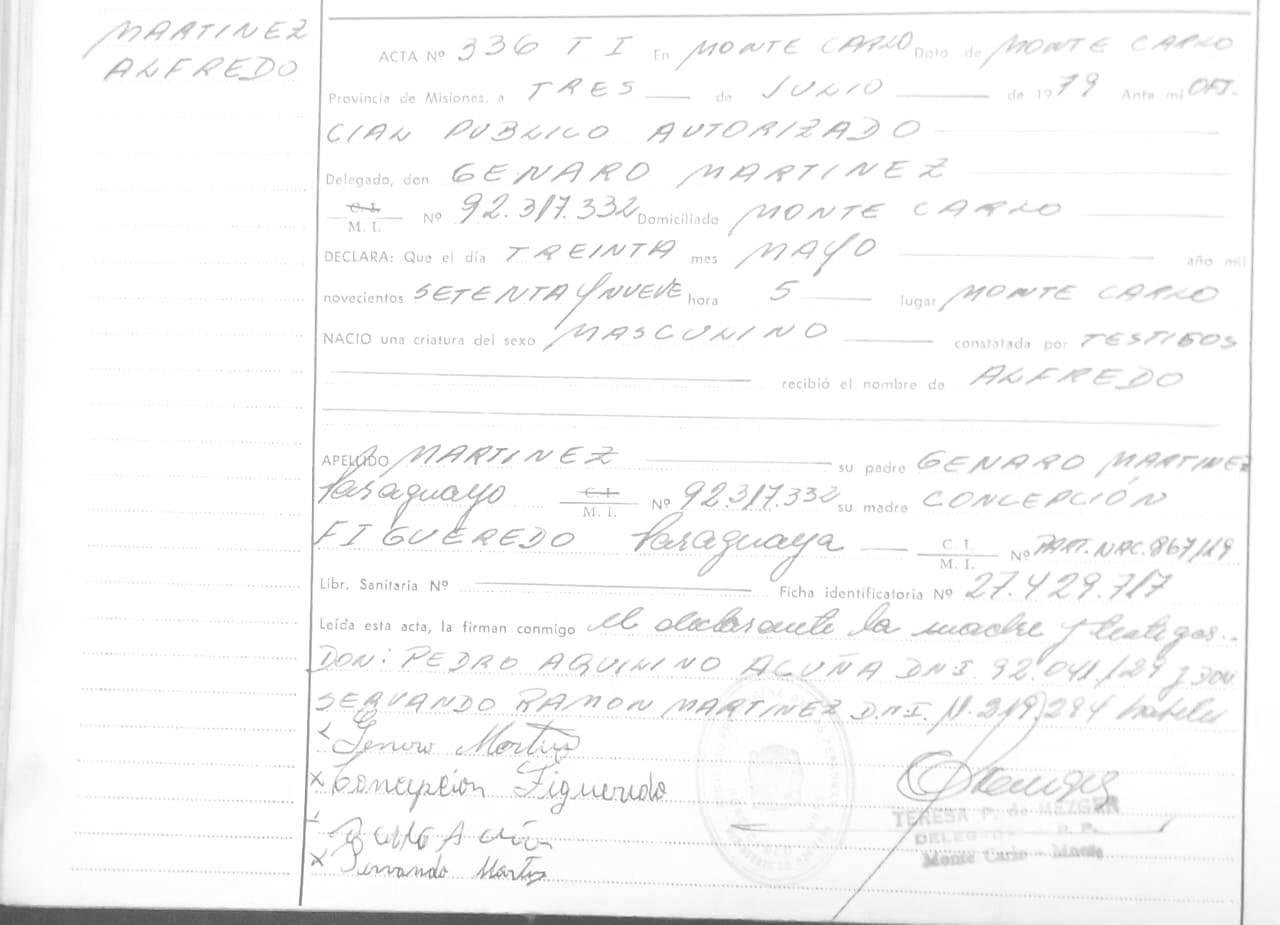 MARTINEZ
ALFREDO
ACTA Nº 336 T I En MONTE CARLO Dpto de MONTE CARLO
Provincia de Misiones, a TRES de JULIO de 1979 Ante mi OFI-
CIAL PUBLICO AUTORIZADO
Delegado, don GENARO MARTINEZ
C. I.
M. I. Nº 92.317.332 Domiciliado MONTE CARLO
DECLARA: Que el día TREINTA mes MAYO año mil
novecientos SETENTA Y NUEVE hora 5 lugar MONTE CARLO
NACIO una criatura del sexo MASCULINO constatada por TESTIGOS
recibió el nombre de ALFREDO
APELLIDO MARTINEZ su padre GENARO MARTINEZ
Paraguayo C. I.
M. I. Nº 92.317.332 su madre CONCEPCIÓN
FIGUEREDO Paraguaya C. I.
M. I. Nº PART. NAC. 867/19
Libr. Sanitaria Nº Ficha identificatoria Nº 27.429.717
Leída esta acta, la firman conmigo el declarante la madre y testigos..
DON: PEDRO AQUILINO ACUÑA D.N.I. 92.041.129 y DON
SERVANDO RAMON MARTINEZ D.N.I. 11.219.294 hábiles
Genaro Martinez
x Concepción Figueredo
x Servando Martinez
TERESA P. de MEZGER
Monte Carlo - Mnes